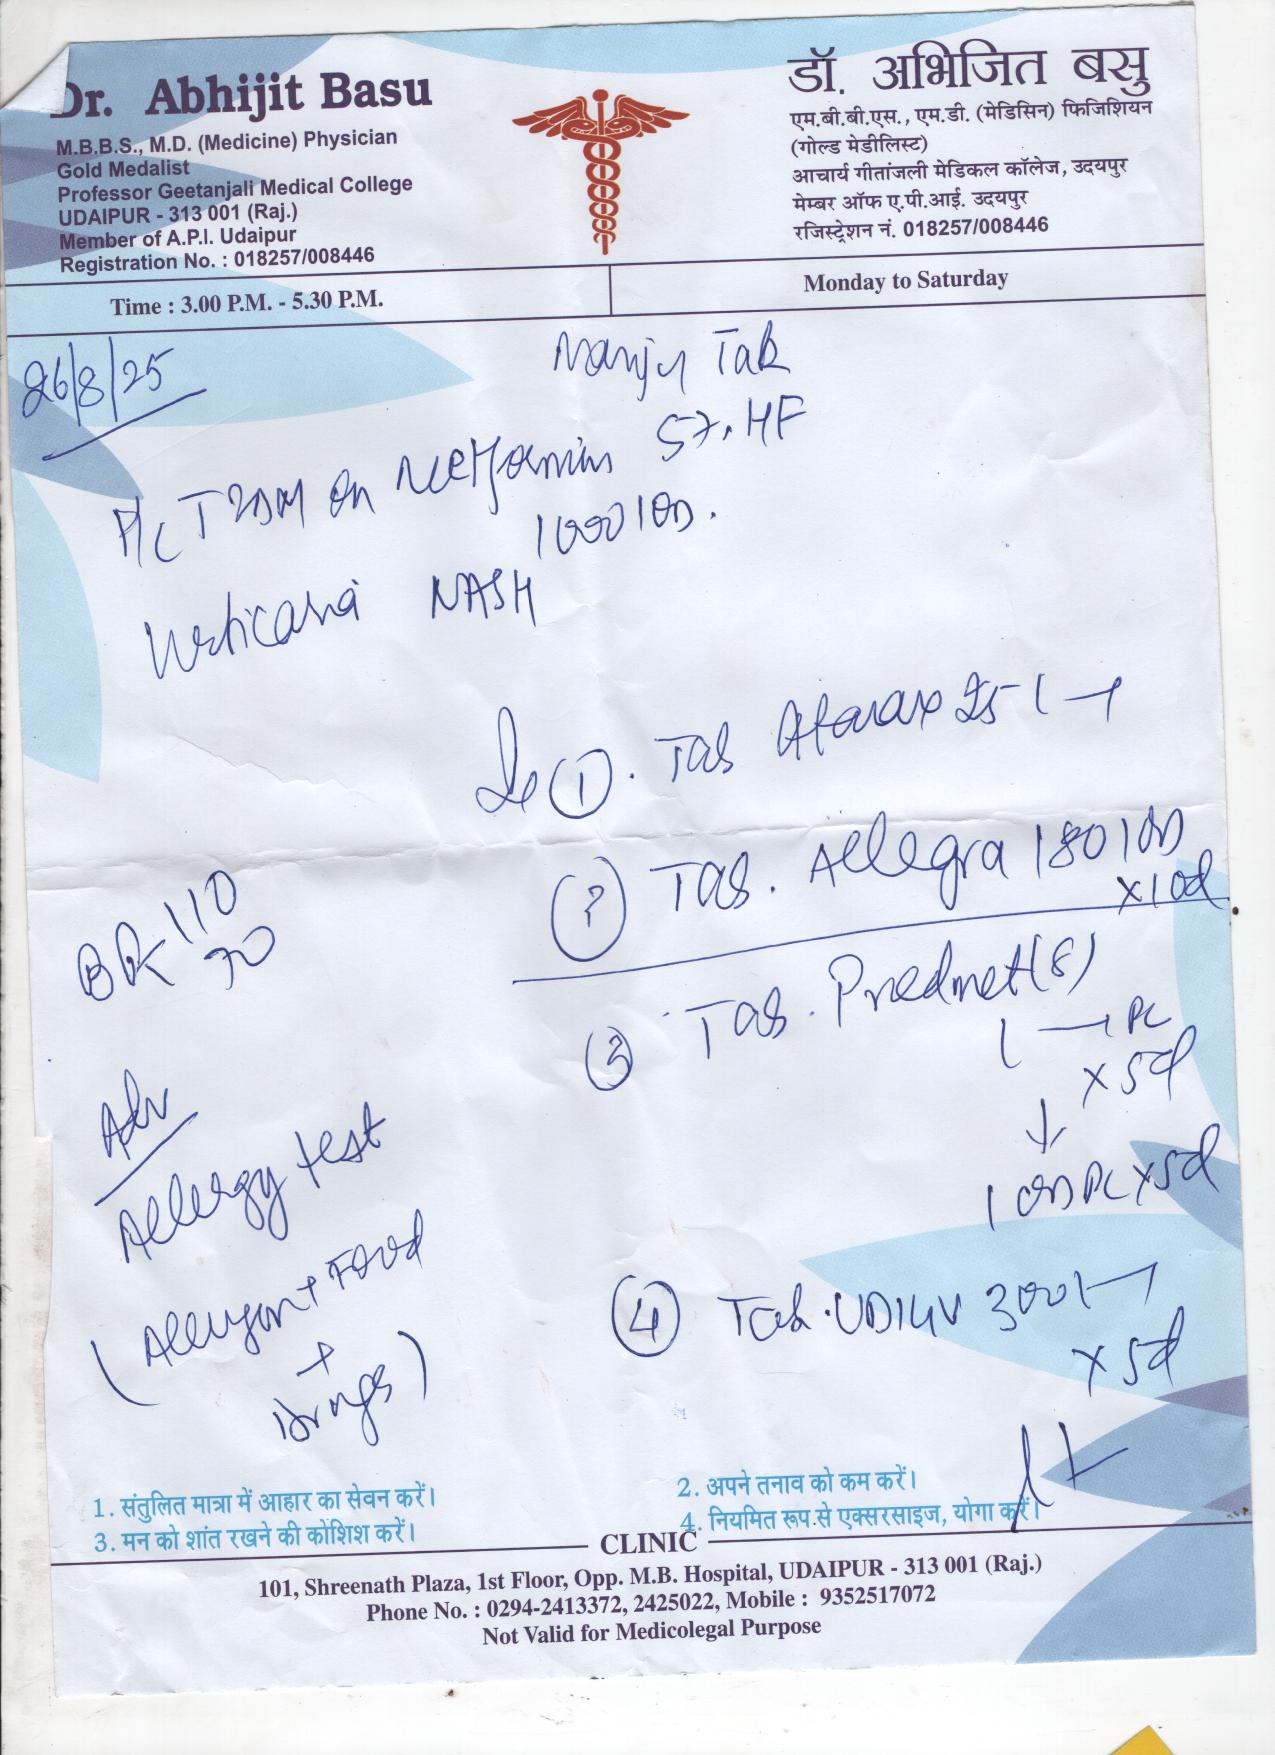 Dr. Abhijit Basu
M.B.B.S., M.D. (Medicine) Physician
Gold Medalist
Professor Geetanjali Medical College
UDAIPUR - 313 001 (Raj.)
Member of A.P.I. Udaipur
Registration No. : 018257/008446
डॉ. अभिजित बसु
एम.बी.बी.एस., एम.डी. (मेडिसिन) फिजिशियन
(गोल्ड मेडीलिस्ट)
आचार्य गीतांजली मेडिकल कॉलेज, उदयपुर
मेम्बर ऑफ ए.पी.आई. उदयपुर
रजिस्ट्रेशन नं. 018257/008446
Time : 3.00 P.M. - 5.30 P.M.
Monday to Saturday
26/8/25
Manju Tak
T2DM on Metformin
1000 1 OD.
Urticaria NASH
① . Tab Atarax 25 1 —
② Tab. Allegra 180 1 OD
x 10d
③ Tab. Predmet (8)
1 — PC
x 5d
↓
1 OD PC x 5d
④ Tab. UDILIV 300 1 —
x 5d
BP 110
70
Adv
Allergy test
( + Food
+
Drugs )
1. संतुलित मात्रा में आहार का सेवन करें।
2. अपने तनाव को कम करें।
3. मन को शांत रखने की कोशिश करें।
4. नियमित रूप.से एक्सरसाइज, योगा करें।
CLINIC
101, Shreenath Plaza, 1st Floor, Opp. M.B. Hospital, UDAIPUR - 313 001 (Raj.)
Phone No. : 0294-2413372, 2425022, Mobile : 9352517072
Not Valid for Medicolegal Purpose